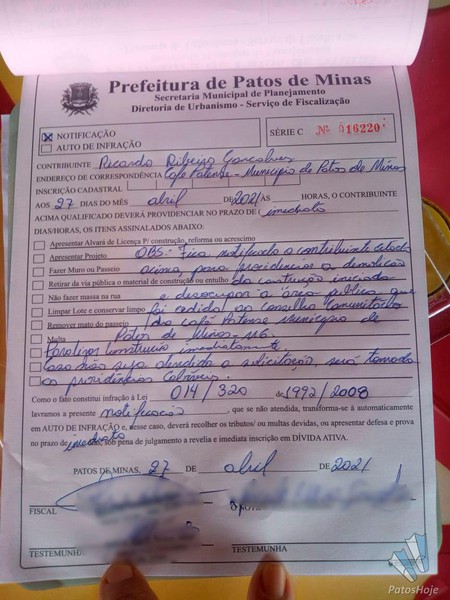 Prefeitura de Patos de Minas
Secretaria Municipal de Planejamento
Diretoria de Urbanismo - Serviço de Fiscalização
NOTIFICAÇÃO
AUTO DE INFRAÇÃO
SÉRIE C Nº 016220
CONTRIBUINTE Ricardo Ribeiro Gonçalves
ENDEREÇO DE CORRESPONDÊNCIA Café Patense - Município de Patos de Minas
INSCRIÇÃO CADASTRAL
AOS 27 DIAS DO MÊS abril DE 2021 ÀS HORAS, O CONTRIBUINTE
ACIMA QUALIFICADO DEVERÁ PROVIDENCIAR NO PRAZO DE imediato
DIAS/HORAS, OS ITENS ASSINALADOS ABAIXO:
Apresentar Alvará de Licença P/ construção, reforma ou acréscimo
Apresentar Projeto OBS: Fica notificado o contribuinte citado
Fazer Muro ou Passeio acima, para providenciar a demolição
Retirar da via pública o material de construção ou entulho da construção iniciada
Não fazer massa na rua e desocupar a área pública que
Limpar Lote e conservar limpo foi cedida ao Conselho Comunitário
Remover mato do passeio do Café Patense Município de
Multa Patos de Minas-MG.
Paralizar construção imediatamente.
Caso não seja atendida a solicitação, será tomada
as providências Cabíveis.
Como o fato constitui infração à Lei 014/320 de 1992/2008
lavramos a presente notificação, que se não atendida, transforma-se à automaticamente
em AUTO DE INFRAÇÃO e, nesse caso, deverá recolher os tributos/ ou multas devidas, ou apresentar defesa e prova
no prazo de imediato sob pena de julgamento a revelia e imediata inscrição em DÍVIDA ATIVA.
PATOS DE MINAS, 27 DE abril DE 2021
FISCAL
TESTEMUNHA TESTEMUNHA
PatosHoje